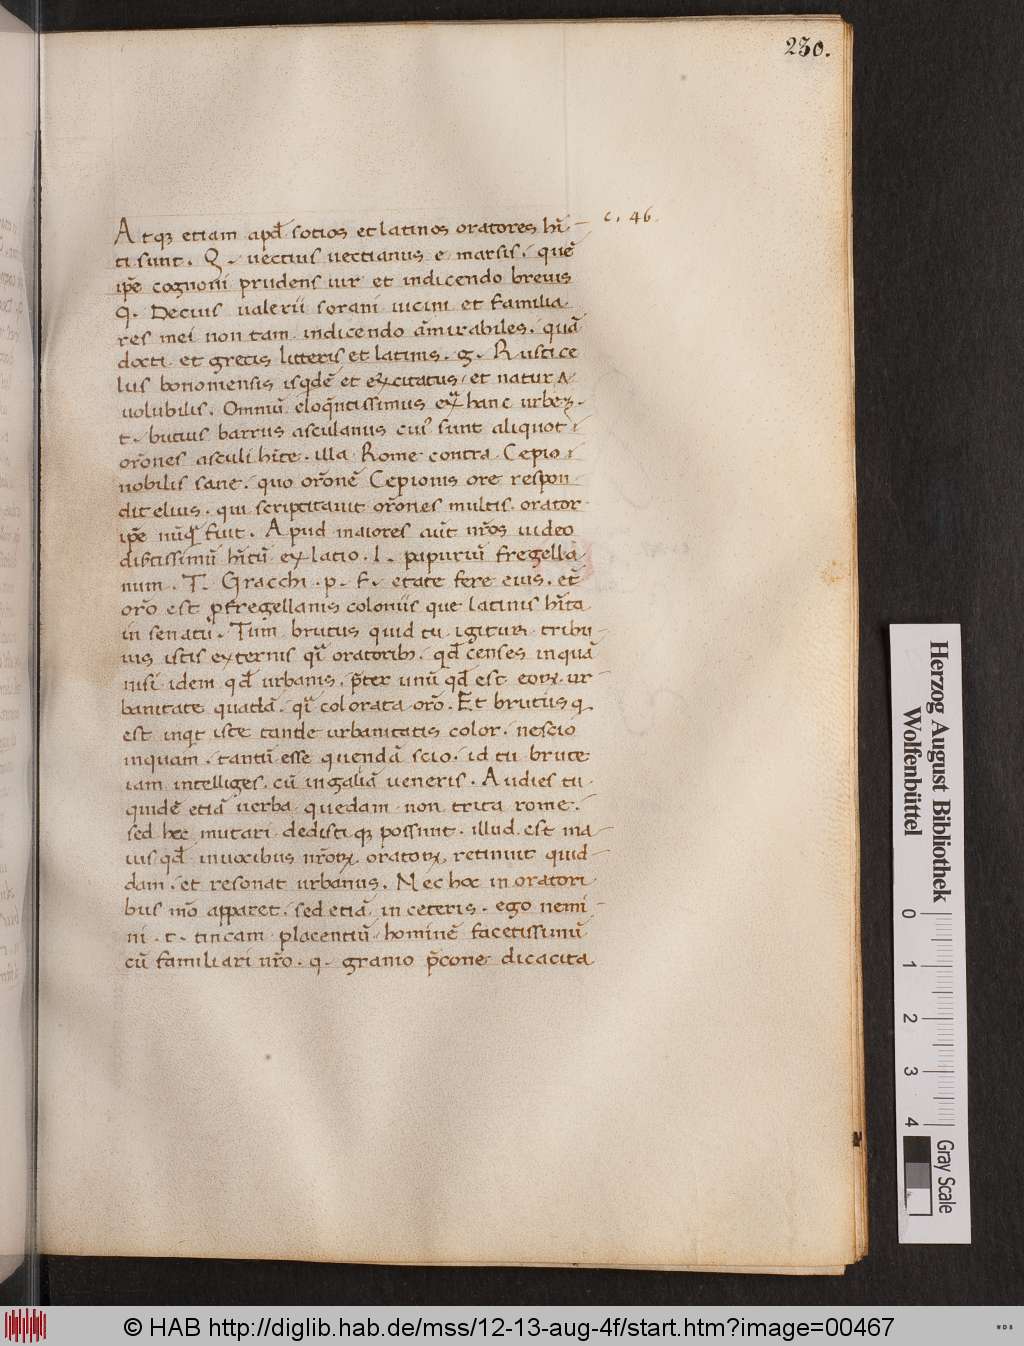 230.
c. 46.
Atqȝ etiam apđ socios et latinos oratores hi᷑
ti sunt. Q. uectius uectianus e marsis. quē
ip̄e cognoui prudens uir et indicendo breuis
Q. Decius ualerii sorani uicini et familia
res mei non tam indicendo am̄irabiles. quā
docti et grecis litteris et latinis. g. Rustice
lus bononiensis isqdē et exercitatus et natura
uolubilis. Omniū eloq̄ntissimus ext᷑ hanc urbeȝ.
t. butius barrus asculanus cui᷒ sunt aliquot
or̄ones asculi hi᷑te. illa Rome contra Cepio
nobilis sane. quo or̄onē Cepionis ore respon
dit elius. qui scriptitauit or̄ones multis. orator
ip̄e nūq̄ fuit. Apud maiores aūt nr̄os uideo
disertissimū hi᷑tū ex latio. l. papiriū fregella
num. T. Gracchi. p. F. etate fere eius. et᷑
or̄o est ꝓ fregellanis coloniis que latinis hi᷑ta
in senatū. Tum brutus quid tu igitur tribu
uis istis externis q̄si oratoribȝ. qđ censes inquā
nisi idem qđ urbanis. p̄ter unū qđ est eoꝝ. ur
banitate quadā. q̄si colorata or̄o. Et brutus q
est inqt iste tandē urbanitatis color. nescio
inquam. tantū esse quendā scio. id tu brute
iam intelliges. cū in galiā ueneris. Audies tu
quidē etiā uerba quedam non trita rome.
sed hec mutari dedisti qȝ possunt. illud est ma
ius qđ in uocibus nr̄oꝝ oratoꝝ, retinnit quid
dam. et resonat urbanus. Nec hoc in oratori
bus mō apparet. sed etiā in ceteris. ego nemi
ni. t. tincam placentiū hominē facetissimū
cū familiari nr̄o. q. granio p̄cone dicacita
Herzog August Bibliothek
Wolfenbüttel
0 1 2 3 4
Gray Scale
© HAB http://diglib.hab.de/mss/12-13-aug-4f/start.htm?image=00467